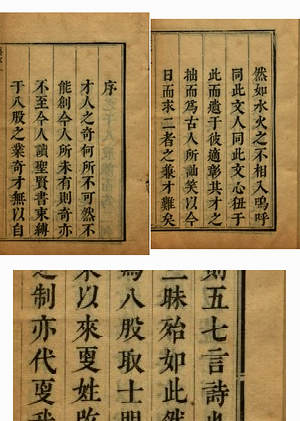 序
才人之奇何所不可然不
能創今人所未有則奇亦
不至今人讀聖賢書束縛
于八股之業奇才無以自
然如水火之不相入嗚呼
同此文人同此文心狃于
此而遺于彼適彰其才之
拙而為古人所訕笑以今
日而求二者之兼才難矣
則五七言詩
三昧殆如此然
為八股取士明
以來更姓改
之制亦代更